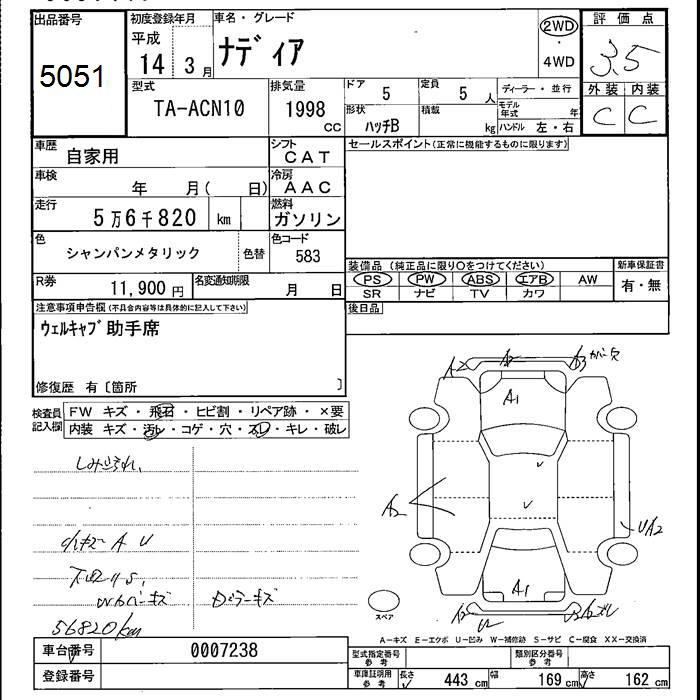 出品番号
5051
初度登録年月
平成
14 3 月
車名・グレード
ナディア
2WD
・
4WD
評価点
3.5
外装 内装
C C
型式
TA-ACN10
排気量
1998
CC
ドア 5
定員 5 人
形状 ハッチB
積載 kg
ディーラー・並行
モデル年式 年
ハンドル 左・右
車歴 自家用
シフト CAT
車検 年 月( 日)
冷房 AAC
走行 5万6千820 km
燃料 ガソリン
色 シャンパンメタリック 色替
色コード 583
R券 11,900 円
名変通知期限 月 日
セールスポイント(正常に機能するものに限ります)
装備品(純正品に限り○をつけてください)
PS PW ABS エアB AW
SR ナビ TV カワ
新車保証書
有・無
後日品
注意事項申告欄(不具合内容等は具体的に記入して下さい)
ウェルキャブ 助手席
修復歴 有〔箇所 〕
検査員記入欄
FW キズ・飛石・ヒビ割・リペア跡・×要
内装 キズ・汚レ・コゲ・穴・スレ・キレ・破レ
小キズ A U
56820km
A2 A A3 ガバ欠
A1
A2
U
U
UA2
A1
A2
U
スペア
A-キズ E-エクボ U-凹み W-補修跡 S-サビ C-腐食 XX-交換済
車台番号 0007238
登録番号
型式指定番号 参考
類別区分番号 参考
車庫証明用 参考
長さ 443 cm 幅 169 cm 高さ 162 cm